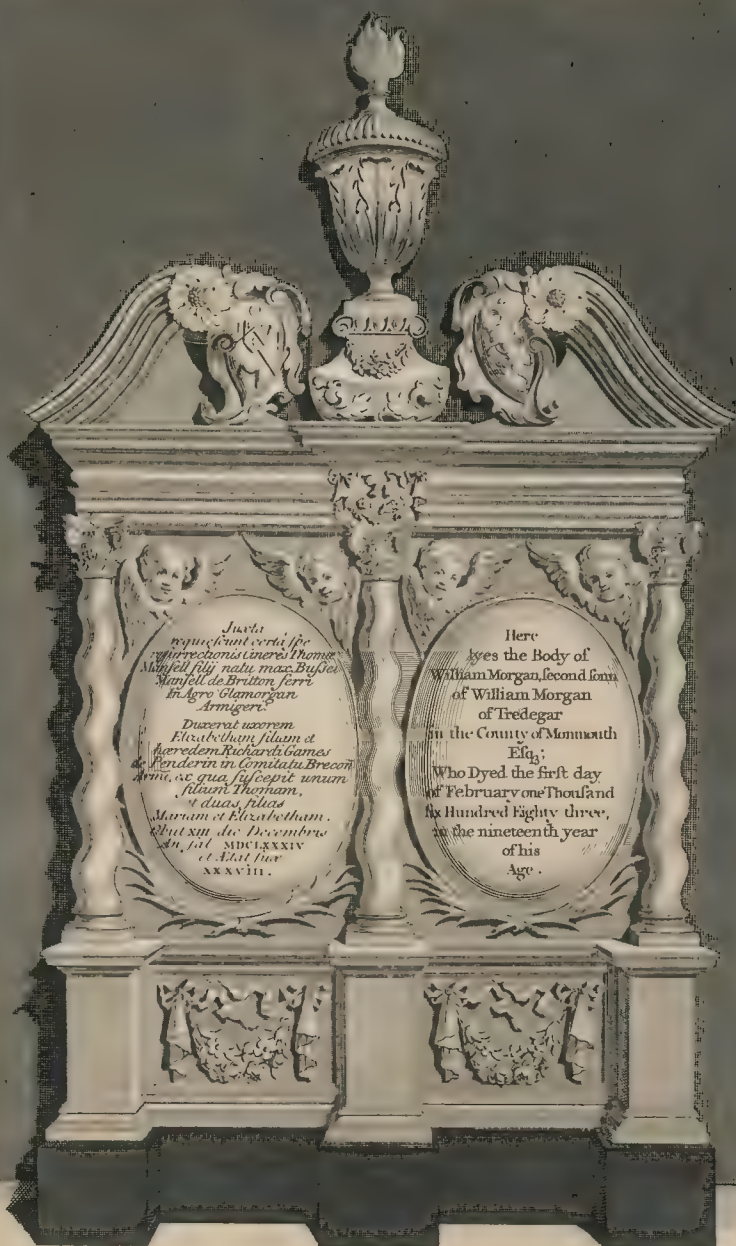 Juxta
requiescunt certâ spe
resurrectionis cineres Thomæ
Mansell filij natu max. Bussei
Mansell de Britton ferri
In Agro Glamorgan
Armigeri.
Duxerat uxorem
Elizabetham filiam et
hæredem Richardi Games
de Penderin in Comitatu Brecon
Armi. ex qua suscepit unum
filium Thomam,
et duas filias
Mariam et Elizabetham.
Obiit XIII die Decembris
An. sal. MDCLXXXIV
et Ætat suæ
XXXVIII.
Here
lyes the Body of
William Morgan, second sonn
of William Morgan
of Tredegar
in the County of Monmouth
Esq3;
Who Dyed the first day
of February one Thousand
six Hundred Eighty three,
in the nineteenth year
of his
Age.